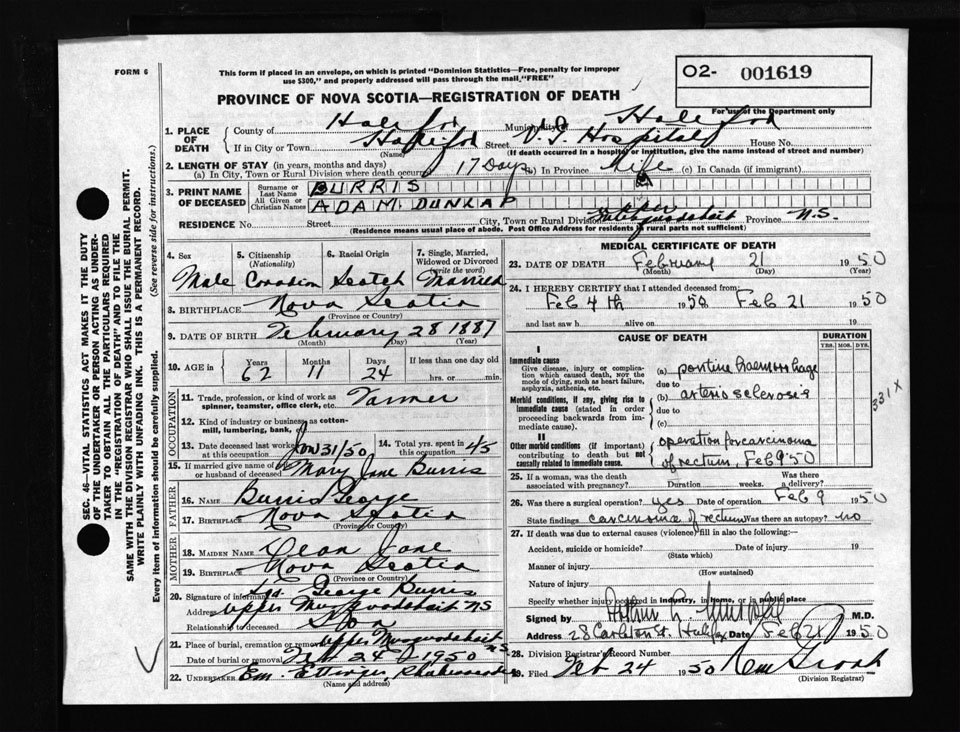 FORM 6
This form if placed in an envelope, on which is printed "Dominion Statistics—Free, penalty for improper
use $300," and properly addressed will pass through the mail, "FREE"
02- 001619
For use of the Department only
PROVINCE OF NOVA SCOTIA—REGISTRATION OF DEATH
1. PLACE OF DEATH County of Halifax Municipality Halifax
If in City or Town Halifax Street V.G. Hospital House No.
(Name) (If death occurred in a hospital or institution, give the name instead of street and number)
2. LENGTH OF STAY (in years, months and days)
(a) In City, Town or Rural Division where death occurred 17 Days (b) In Province Life (c) In Canada (if immigrant)
3. PRINT NAME OF DECEASED Surname or Last Name BURRIS
All Given or Christian Names ADAM. DUNLAP
RESIDENCE No. Street City, Town or Rural Division Upper Musquodoboit Province N.S.
(Residence means usual place of abode. Post Office Address for residents in rural parts not sufficient)
4. Sex Male
5. Citizenship (Nationality)
6. Racial Origin Scotch
7. Single, Married, Widowed or Divorced (write the word) Married
8. BIRTHPLACE Nova Scotia
(Province or Country)
9. DATE OF BIRTH February 28 1887
(Month) (Day) (Year)
10. AGE in Years 62 Months 11 Days 24 If less than one day old hrs. or min.
OCCUPATION
11. Trade, profession, or kind of work as spinner, teamster, office clerk, etc. Farmer
12. Kind of industry or business, as cotton-mill, lumbering, bank, etc.
13. Date deceased last worked at this occupation Jan 31/50
14. Total yrs. spent in this occupation 45
15. If married give name of wife or husband of deceased Mary Jane Burris
FATHER
16. NAME Burris George
17. BIRTHPLACE Nova Scotia
(Province or Country)
MOTHER
18. MAIDEN NAME Dean Jane
19. BIRTHPLACE Nova Scotia
(Province or Country)
20. Signature of informant George Burris
Address Upper Musquodoboit NS
Relationship to deceased Son
21. Place of burial, cremation or removal Upper Musquodoboit N.S.
Date of burial or removal Feb 24 1950
22. UNDERTAKER Em. Ettinger
(Name and address)
MEDICAL CERTIFICATE OF DEATH
23. DATE OF DEATH February 21 1950
(Month) (Day) (Year)
24. I HEREBY CERTIFY that I attended deceased from:
Feb 4th 1950 Feb 21 1950
and last saw h alive on 19
CAUSE OF DEATH
DURATION
YRS. MOS. DYS.
I
Immediate cause
Give disease, injury or complication which caused death, NOT the mode of dying, such as heart failure, asphyxia, asthenia, etc.
(a) pontine haemorrhage
due to
Morbid conditions, if any, giving rise to immediate cause (stated in order proceeding backwards from immediate cause).
(b) arteriosclerosis
due to
(c)
331 X
II
Other morbid conditions (if important) contributing to death but not causally related to immediate cause.
operation for carcinoma
of rectum, Feb 9 '50
25. If a woman, was the death associated with pregnancy? Duration weeks. Was there a delivery?
26. Was there a surgical operation? yes Date of operation Feb 9 1950
State findings carcinoma of rectum Was there an autopsy? no
27. If death was due to external causes (violence) fill in also the following:—
Accident, suicide or homicide? Date of injury 19
(State which)
Manner of injury
(How sustained)
Nature of injury
Specify whether injury occurred in industry, in home, or in public place
Signed by M.D.
Address 28 Carleton St. Halifax Date Feb 21 1950
28. Division Registrar's Record Number
29. Filed Feb 24 1950
(Division Registrar)
SEC. 46—VITAL STATISTICS ACT MAKES IT THE DUTY
OF THE UNDERTAKER OR PERSON ACTING AS UNDERTAKER TO OBTAIN ALL THE PARTICULARS REQUIRED
IN THE "REGISTRATION OF DEATH" AND TO FILE THE
SAME WITH THE DIVISION REGISTRAR WHO SHALL ISSUE THE BURIAL PERMIT.
WRITE PLAINLY WITH UNFADING INK. THIS IS A PERMANENT RECORD.
Every item of information should be carefully supplied. (See reverse side for instructions.)